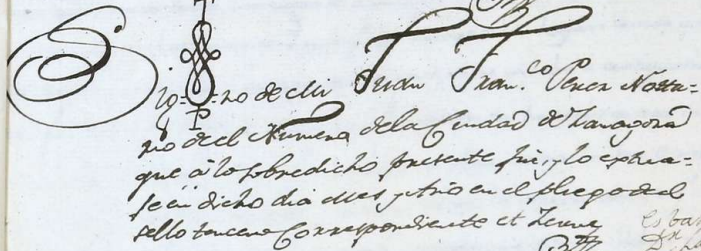 Sig=no de Mi Juan Fran.co Perez Nota=
rio del Numero de la Ciudad de Zaragoza
que â lo sobredicho presente fui, y lo extra=
se en dicho dia Mes y Año en el pliego del
sello tercero Correspondiente et Cerre